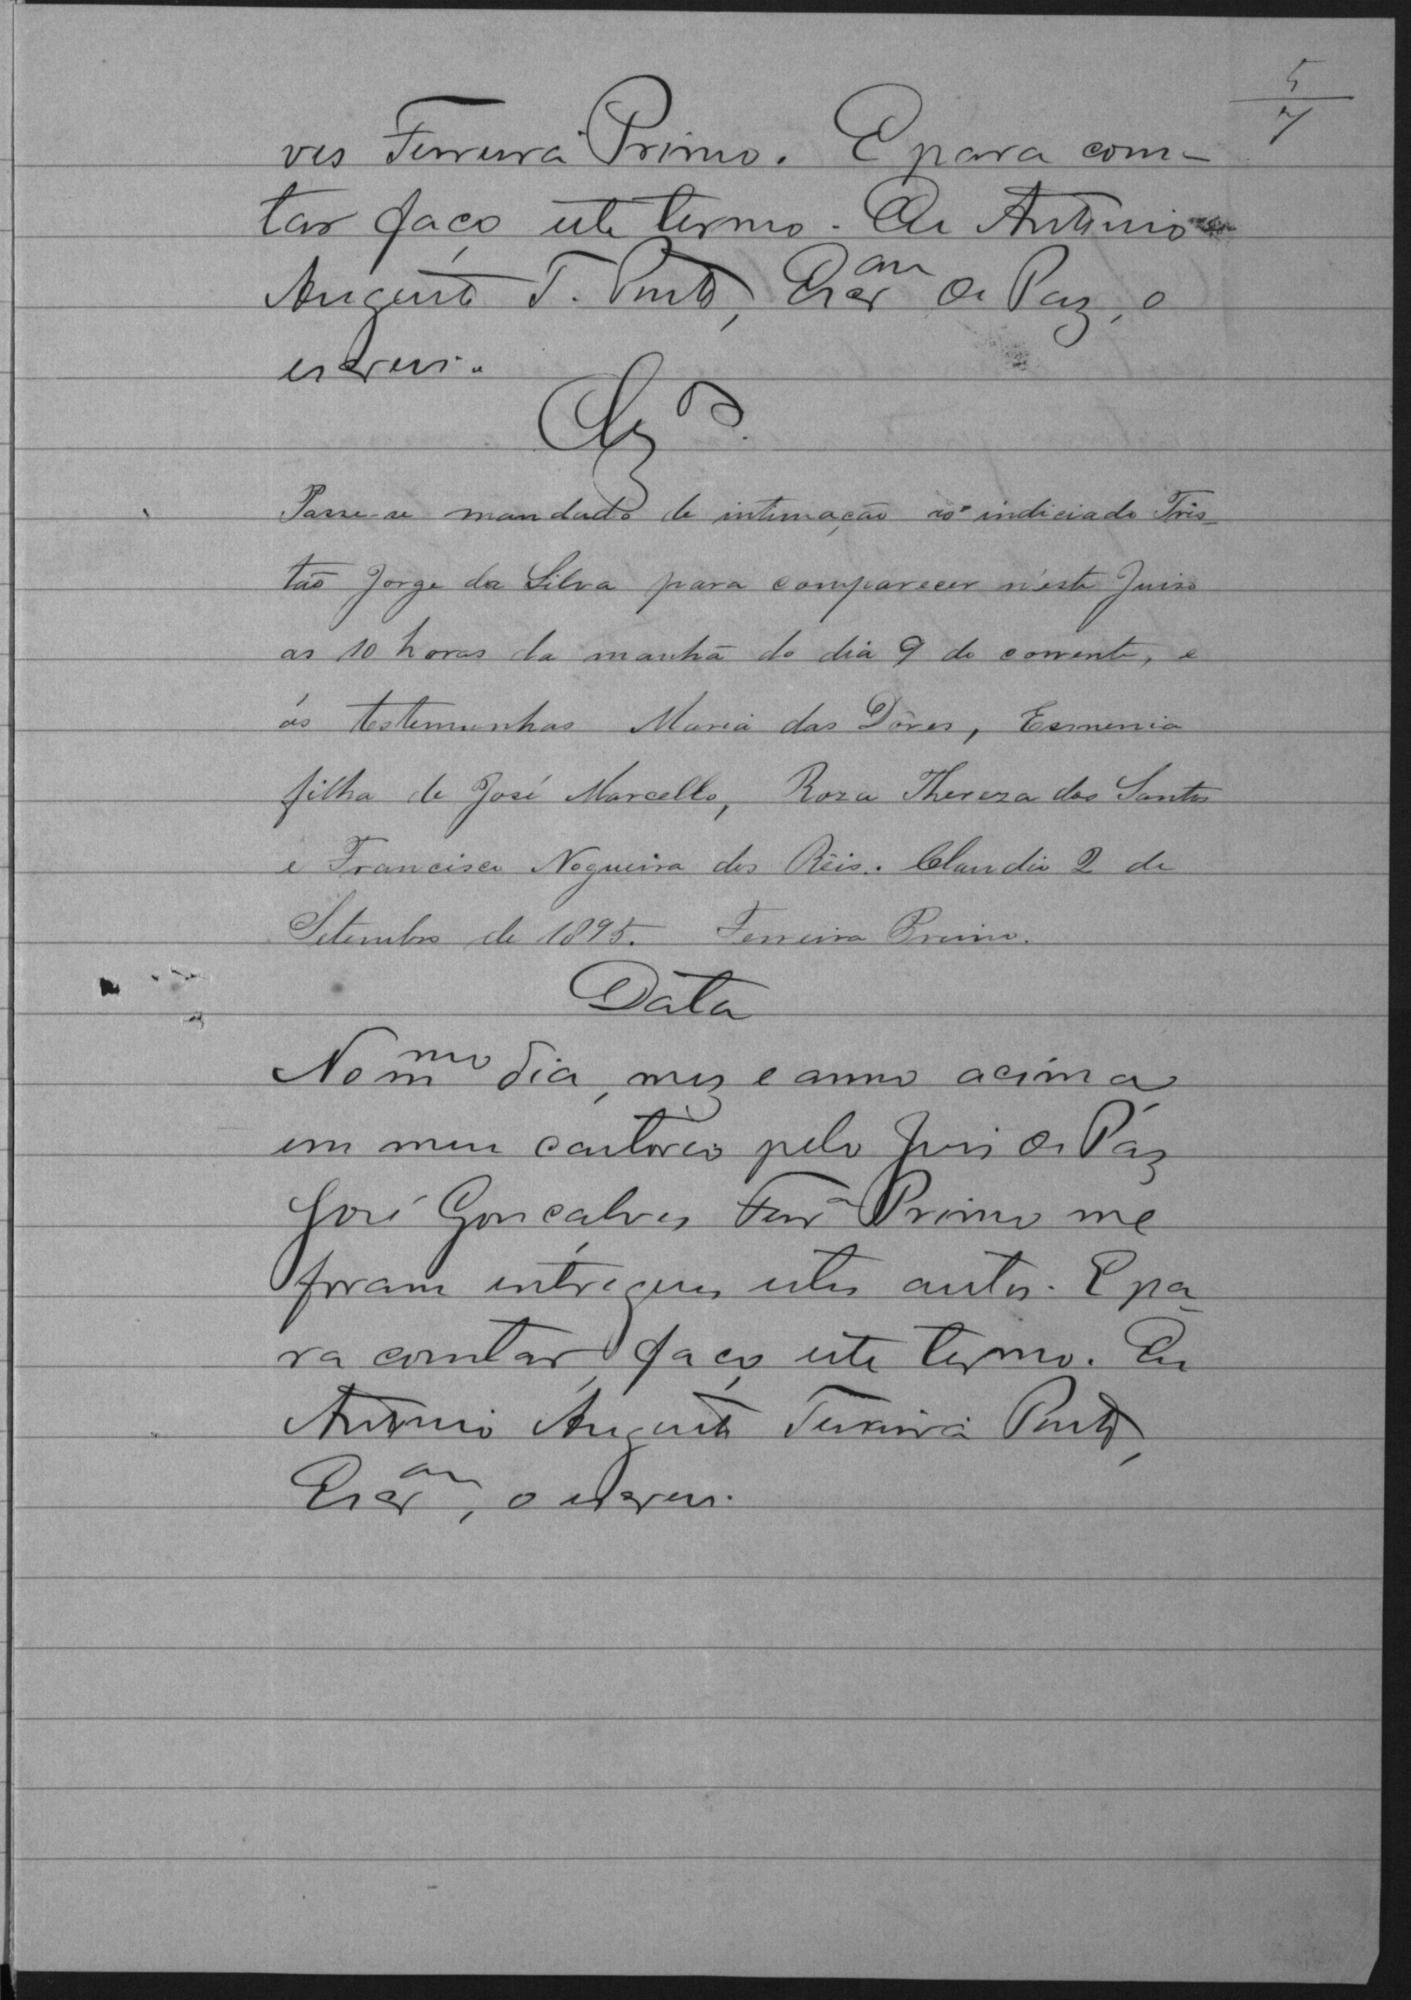 5
7
ves Ferreira Primo. E para cons-
tar faço este termo. Eu Antonio
Augusto T. Porto, Escr.am de Paz, o
escrevi.
Clz.os
Passe-se mandado de intimação ao indiciado Tris-
tão Jorge da Silva para comparecer n'este Juiso
as 10 horas da manhã do dia 9 do corrente, e
ás testemunhas Maria das Dôres, Esmenia
filha de José Marcello, Roza Thereza dos Santos
e Francisco Nogueira dos Reis. Claudio 2 de
Setembro de 1895. Ferreira Primo.
Data
No m.mo dia, mez e anno acima,
em meu cartorio pelo Juis de Paz
José Gonçalves Ferr.a Primo me
foram entregues estes autos. E pa-
ra constar, faço este termo. Eu
Antonio Augusto Teixeira Porto,
Escr.am, o escrevi.